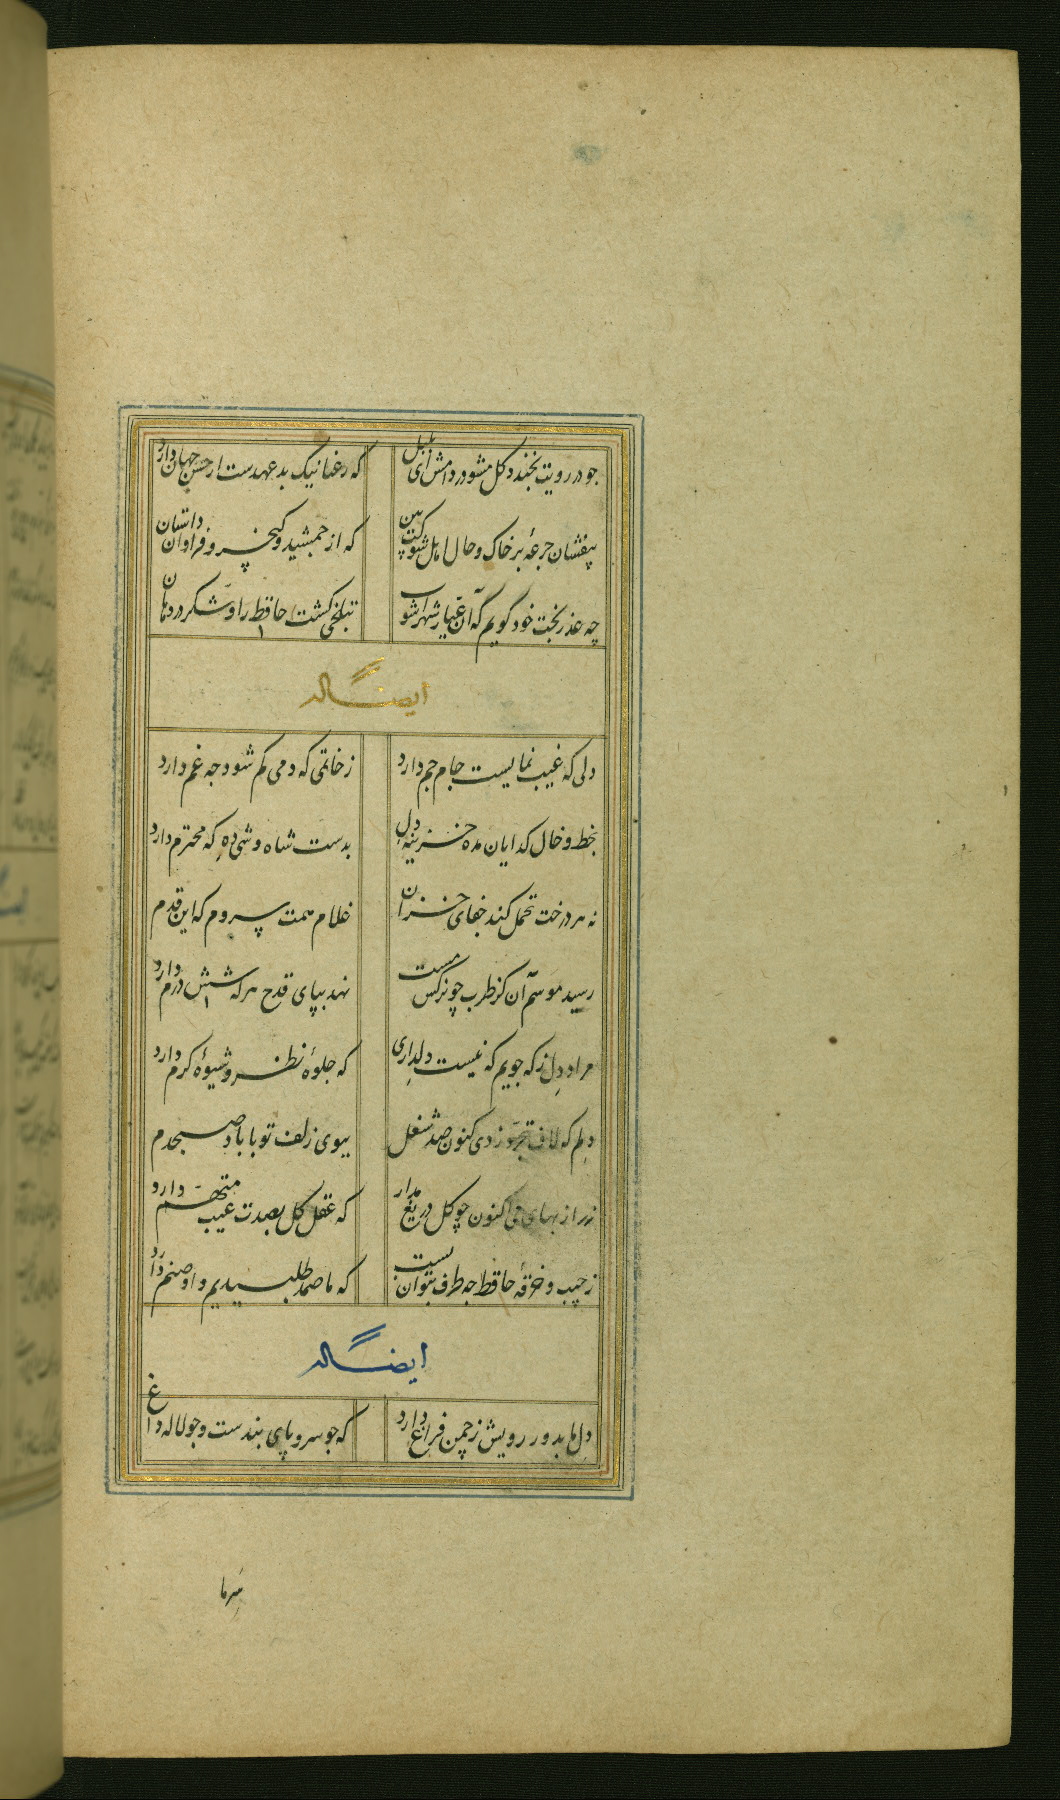 چو در رویت بخندد گل مشو در دامش ای بلبل
که رعنا نیک بد عهدست ار حسن جهان دارد
بیفشان جرعهٔ بر خاک و حال اهل شوکت بین
که از جمشید و کیخسرو فراوان داستان
چه عذر بخت خود گویم که آن عیار شهرآشوب
بتلخی کشت حافظ را و شکر در دهان
ایضاً له
دلی که غیب نمایست جام جم دارد
ز خاتمی که دمی کم شود چه غم دارد
بخط و خال کدایان مده خزینهٔ دل
بدست شاه وشی ده که محترم دارد
نه هر درخت تحمل کند جفای خزان
غلام همت سروم که این قدم
رسید موسم آن کز طرب چو نرکس مست
نهد بپای قدح هر که شش درم دارد
مراد دل ز که جویم که نیست دلداری
که جلوهٔ نظر و شیوهٔ کرم دارد
دلم که لاف تجرد زدی کنون صد شغل
ببوی زلف تو با باد صبحدم
زر از بهای می اکنون چو کل دریغ مدار
که عقل کل بصدت عیب متهم دارد
ز جیب و خرقهٔ حافظ چه طرف بتوان بست
که ما صمد طلبیدیم و او صنم دارد
ایضاً له
دل ما بدور رویش ز چمن فراغ دارد
که چو سرو پای بندست و چو لاله داغ
سر ما